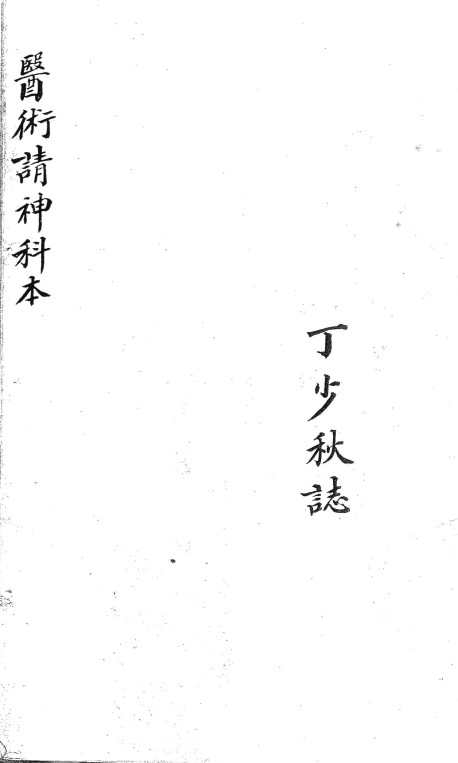 丁少秋誌
醫術請神科本